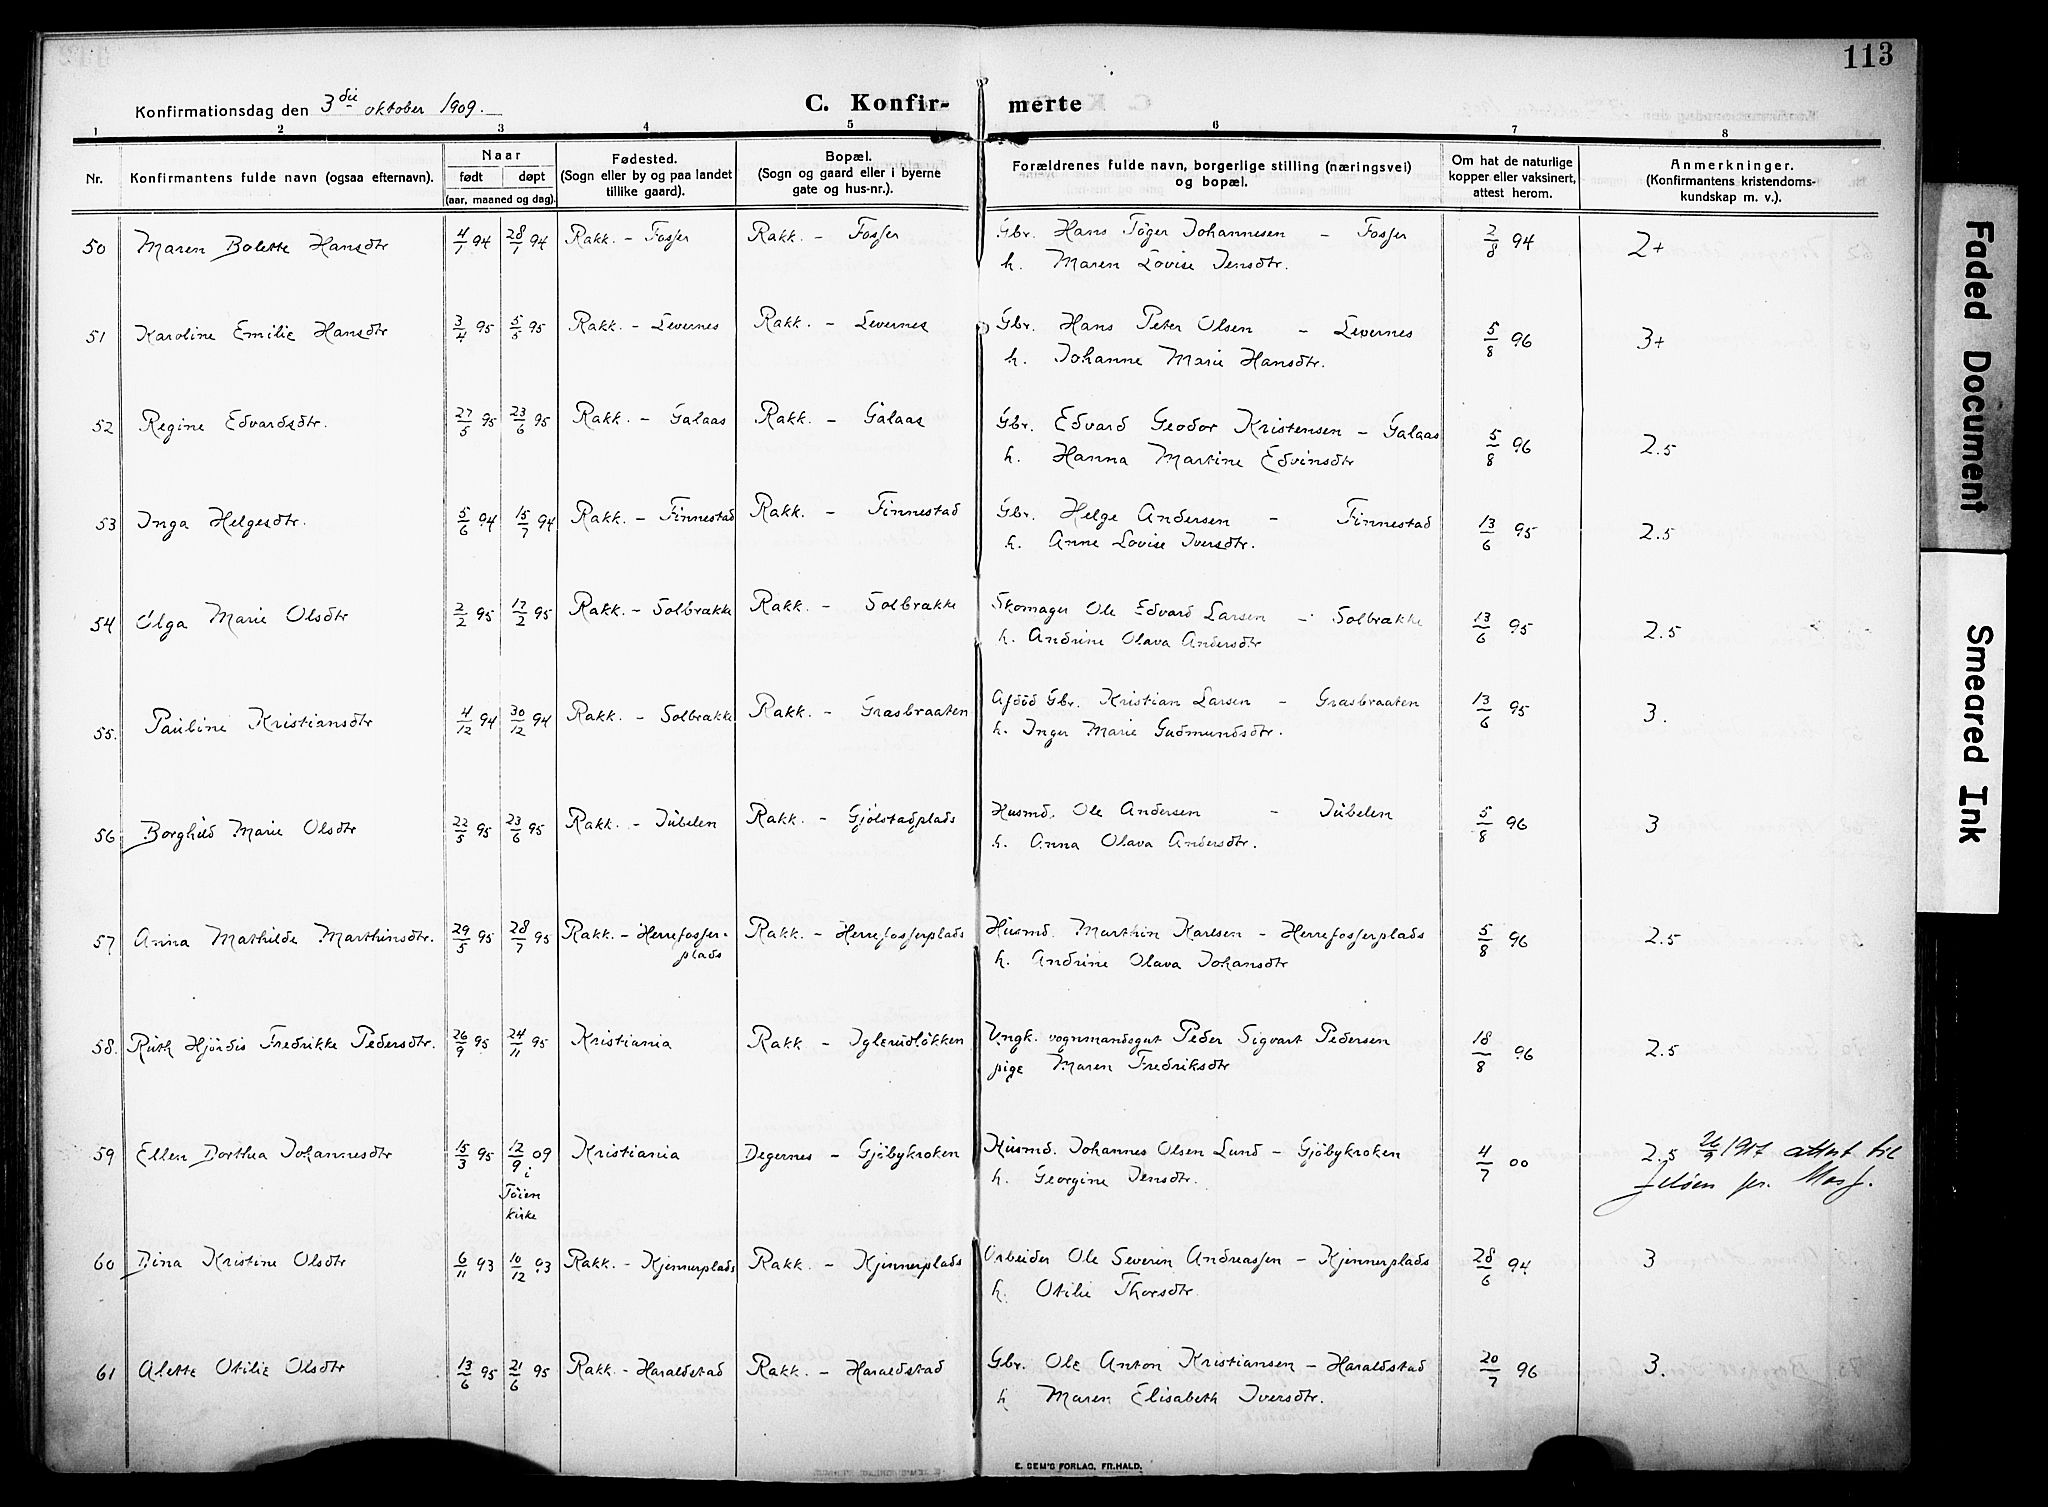 113
Konfirmationsdag den 3die oktober 1909.
C. Konfir- merte
1 2 3 4 5 6 7 8
Nr. Konfirmantens fulde navn (ogsaa efternavn). Naar født døpt (aar, maaned og dag). Fødested. (Sogn eller by og paa landet tillike gaard). Bopæl. (Sogn og gaard eller i byerne gate og hus-nr.). Forældrenes fulde navn, borgerlige stilling (næringsvei) og bopæl. Om hat de naturlige kopper eller vaksinert, attest herom. Anmerkninger. (Konfirmantens kristendoms-kundskap m. v.).
50 Maren Bolette Hansdtr 4/7 94 28/7 94 Rakk. - Fosser Rakk. - Fosser Gbr. Hans Töger Johannesen - Fosser 2/8 94 2+
h. Maren Lovise Jensdtr.
51 Karoline Emilie Hansdtr 3/4 95 5/5 95 Rakk. - Levernes Rakk. - Levernes Gbr. Hans Peter Olsen - Levernes 5/8 96 3+
h. Johanne Marie Hansdtr.
52 Regine Edvardsdtr. 27/5 95 23/6 95 Rakk. - Galaas Rakk. - Galaas Gbr. Edvard Geodor Kristensen - Galaas 5/8 96 2.5
h. Hanna Martine Edvinsdtr
53 Inga Helgesdtr. 5/6 94 15/7 94 Rakk. - Finnestad Rakk. - Finnestad Gbr. Helge Andersen - Finnestad 13/6 95 2.5
h. Anne Lovise Iversdtr.
54 Olga Marie Olsdtr 2/2 95 17/2 95 Rakk. - Solbrække Rakk. - Solbrække Skomager Ole Edvard Larsen - Solbrække 13/6 95 2.5
h. Andrine Olava Andersdtr
55. Pauline Kristiansdtr 4/12 94 30/12 94 Rakk. - Solbrække Rakk. - Grasbraaten Afdöd Gbr. Kristian Larsen - Grasbraaten 13/6 95 3.
h. Inger Marie Gudmundsdtr.
56 Borghild Marie Olsdtr 22/5 95 23/6 95 Rakk. - Jubelen Rakk. - Gjölstadplads Husmd. Ole Andersen - Jubelen 5/8 96 3
h. Anna Olava Andersdtr.
57 Anna Mathilde Marthinsdtr. 29/5 95 28/7 95 Rakk. - Herrefosser-plads Rakk. - Herrefosserplads Husmd. Marthin Karlsen - Herrefosserplads 5/8 96 2.5
h. Andrine Olava Johansdtr
58. Ruth Hjördis Fredrikke Pedersdtr. 26/9 95 24/11 95 Kristiania Rakk - Iglerudlökken Ungk. vognmandsgut Peder Sigvart Pedersen 18/8 96 2.5
pige Maren Fredriksdtr
59 Ellen Dorthea Johannesdtr 15/3 95 12/9 09 i Töien kirke Kristiania Degernes - Gjöbykroken Husmd. Johannes Olsen Lund - Gjöbykroken 4/7 00 2.5 26/9 1917 attest til
h. Georgine Jensdtr. Jelöen pr. Moss.
60 Dina Kristine Olsdtr 6/11 93 10/12 93 Rakk. - Kjennerplads Rakk. - Kjennerplads Arbeider Ole Severin Andreassen - Kjennerplads 28/6 94 3
h. Otilie Thorsdtr.
61 Alette Otilie Olsdtr 13/6 95 21/6 95 Rakk. - Haraldstad Rakk. - Haraldstad Gbr. Ole Anton Kristiansen - Haraldstad 20/7 96 3.
h Maren Elisabeth Iversdtr.
E. SEM'S FORLAG, FR.HALD.
Faded Document
Smeared Ink